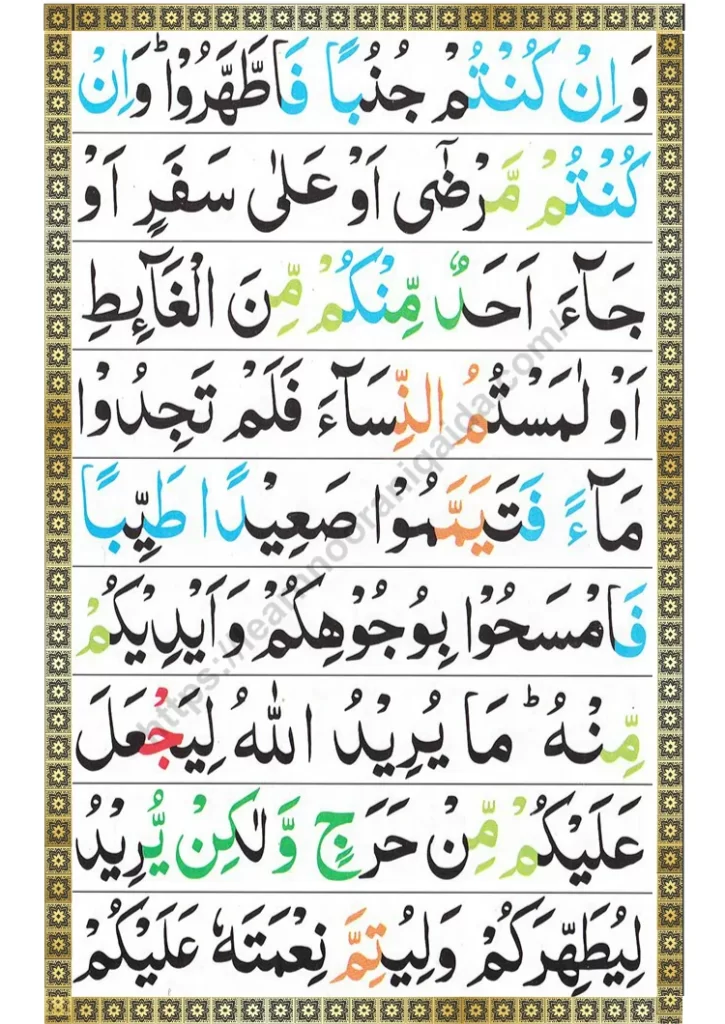 وَاِنْ كُنْتُمْ جُنُبًا فَاطَّهَّرُوْا ؕ وَاِنْ
كُنْتُمْ مَّرْضٰٓى اَوْ عَلٰى سَفَرٍ اَوْ
جَآءَ اَحَدٌ مِّنْكُمْ مِّنَ الْغَآئِطِ
اَوْ لٰمَسْتُمُ النِّسَآءَ فَلَمْ تَجِدُوْا
مَآءً فَتَيَمَّمُوْا صَعِيْدًا طَيِّبًا
فَامْسَحُوْا بِوُجُوْهِكُمْ وَاَيْدِيْكُمْ
مِّنْهُ ؕ مَا يُرِيْدُ اللّٰهُ لِيَجْعَلَ
عَلَيْكُمْ مِّنْ حَرَجٍ وَّلٰكِنْ يُّرِيْدُ
لِيُطَهِّرَكُمْ وَلِيُتِمَّ نِعْمَتَهٗ عَلَيْكُمْ
https://learnnooraniqaida.com/